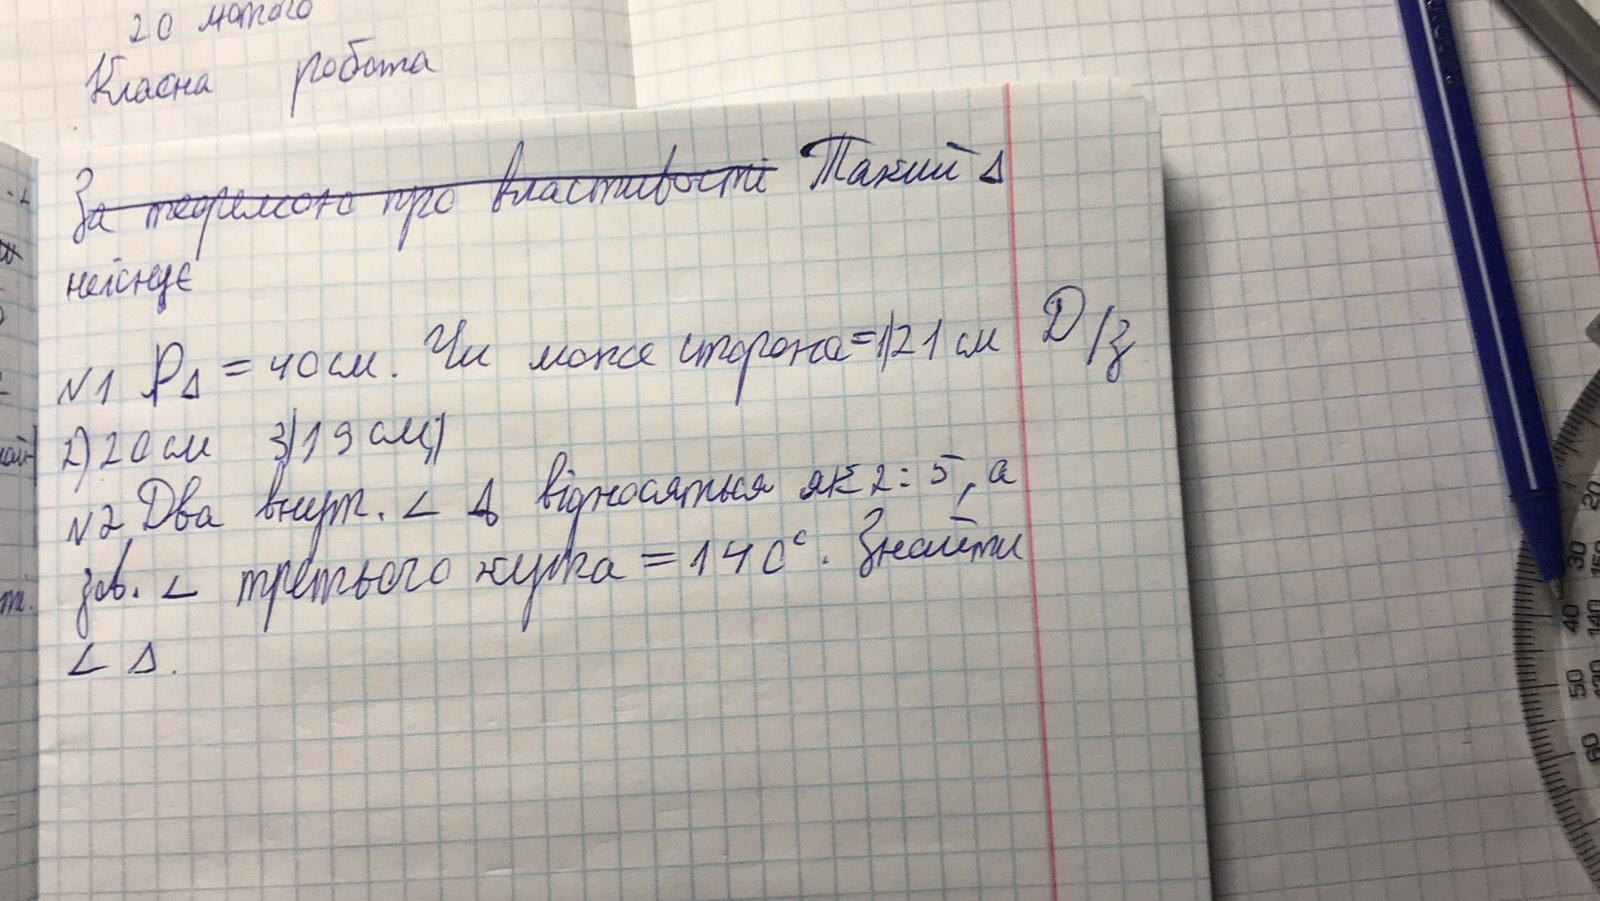 20 лютого
Класна робота
За теоремою про властивості Такий Δ
неіснує
N1 PΔ = 40 см. Чи може сторона = 1) 21 см Д/з
2) 20 см 3) 19 см?
N2 Два внут. ∠ Δ відносяться як 2 : 5, а
зов. ∠ третього кута = 140°. Знайти
∠ Δ.
20
30
40
50
60
150
140
130